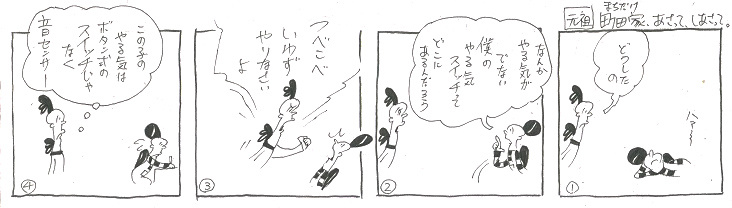 まちだけ
元祖 町田家、あさって、しあさって。
どうした
の
ハァ〜〜
①
なんか
やる気が
でない
僕の
やる気
スイッチって
どこに
あるんだろう
②
つべこべ
いわず
やりなさい
よ
③
この子の
やる気は
ボタン式の
スイッチじゃ
なく
音センサー
④